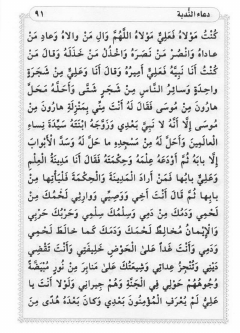 دعاء الندبة ٩١
كُنْتُ مَوْلاهُ فَعَلِيٌّ مَوْلاهُ اللَّهُمَّ والِ مَنْ والاهُ وَعادِ مَنْ
عاداهُ وَانْصُرْ مَنْ نَصَرَهُ وَاخْذُلْ مَنْ خَذَلَهُ وَقالَ مَنْ
كُنْتُ أَنَا نَبِيَّهُ فَعَلِيٌّ أَمِيرُهُ وَقالَ أَنَا وَعَلِيٌّ مِنْ شَجَرَةٍ
واحِدَةٍ وَسائِرُ النَّاسِ مِنْ شَجَرٍ شَتَّى وَأَحَلَّهُ مَحَلَّ
هارُونَ مِنْ مُوسَى فَقالَ لَهُ أَنْتَ مِنِّي بِمَنْزِلَةِ هارُونَ مِنْ
مُوسَى إِلَّا أَنَّهُ لا نَبِيَّ بَعْدِي وَزَوَّجَهُ ابْنَتَهُ سَيِّدَةَ نِساءِ
الْعالَمِينَ وَأَحَلَّ لَهُ مِنْ مَسْجِدِهِ ما حَلَّ لَهُ وَسَدَّ الْأَبْوابَ
إِلَّا بابَهُ ثُمَّ أَوْدَعَهُ عِلْمَهُ وَحِكْمَتَهُ فَقالَ أَنَا مَدِينَةُ الْعِلْمِ
وَعَلِيٌّ بابُها فَمَنْ أَرادَ الْمَدِينَةَ وَالْحِكْمَةَ فَلْيَأْتِها مِنْ
بابِها ثُمَّ قالَ أَنْتَ أَخِي وَوَصِيِّي وَوارِثِي لَحْمُكَ مِنْ
لَحْمِي وَدَمُكَ مِنْ دَمِي وَسِلْمُكَ سِلْمِي وَحَرْبُكَ حَرْبِي
وَالْإِيْمانُ مُخالِطٌ لَحْمَكَ وَدَمَكَ كَما خالَطَ لَحْمِي
وَدَمِي وَأَنْتَ غَداً عَلَى الْحَوْضِ خَلِيفَتِي وَأَنْتَ تَقْضِي
دَيْنِي وَتُنْجِزُ عِداتِي وَشِيعَتُكَ عَلَى مَنابِرَ مِنْ نُورٍ مُبْيَضَّةً
وُجُوهُهُمْ حَوْلِي فِي الْجَنَّةِ وَهُمْ جِيرانِي وَلَوْلا أَنْتَ يا
عَلِيُّ لَمْ يُعْرَفِ الْمُؤْمِنُونَ بَعْدِي وَكانَ بَعْدَهُ هُدًى مِنَ